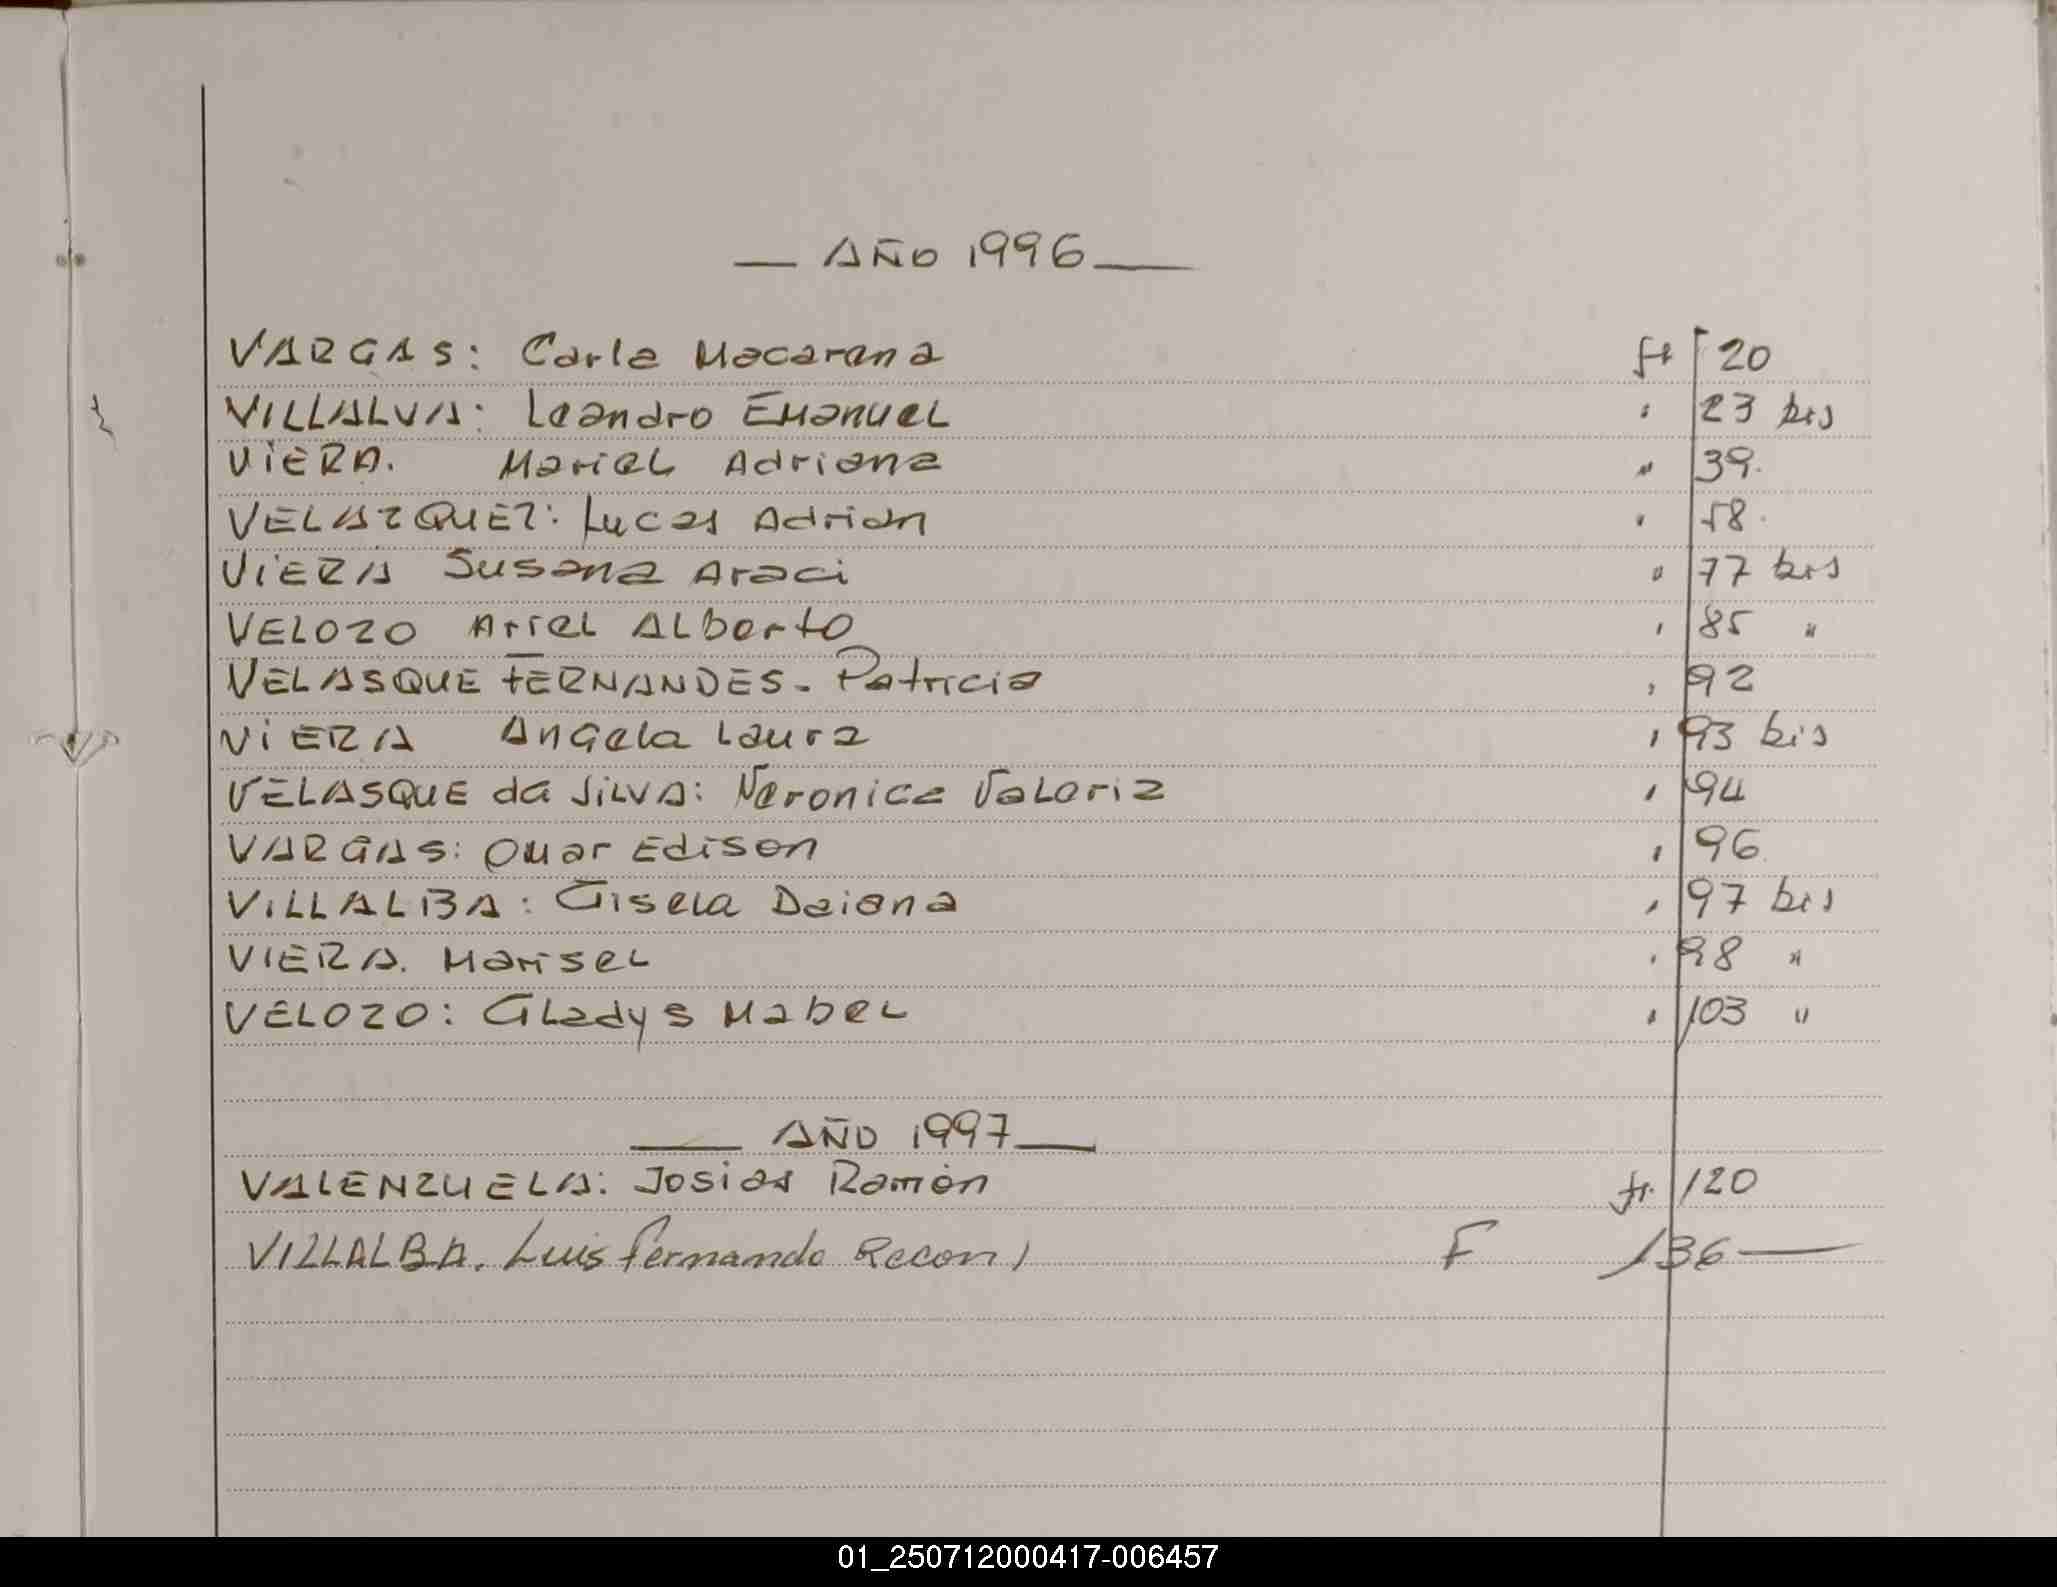 — AÑO 1996 —
VARGAS: Carla Macarena ft 20
VILLALVA: Leandro Emanuel " 23 bis
VIERA. Mariel Adriana " 39.
VELAZQUEZ: Lucas Adrian " 58.
VIERA Susana Araci " 77 bis
VELOZO Ariel Alberto " 85 "
VELASQUE FERNANDES - Patricia " 92
VIERA Angela Laura " 93 bis
VELASQUE da SILVA: Veronica Valeria " 94
VARGAS: Omar Edison " 96
VILLALBA: Gisela Daiana " 97 bis
VIERA. Marisel " 98 "
VELOZO: Gladys Mabel " 103 "
— AÑO 1997 —
VALENZUELA: Josias Ramón ft. 120
VILLALBA. Luis Fernando Recon) F 136 —
01_250712000417-006457